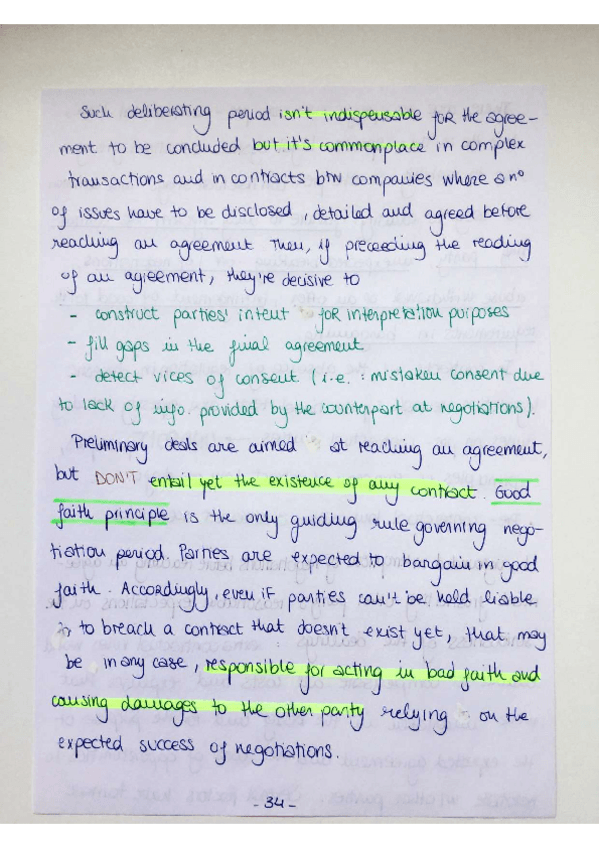 Such deliberating period isn't indispensable for the agree-
ment to be concluded but it's commonplace in complex
transactions and in contracts btw companies where a nº
of issues have to be disclosed, detailed and agreed before
reaching an agreement. Then, if preceeding the reading
of an agreement, they're decisive to
- construct parties' intent for interpretation purposes
- fill gaps in the final agreement
- detect vices of consent (i.e.: mistaken consent due
to lack of info. provided by the counterpart at negotiations).
Preliminary deals are aimed at reaching an agreement,
but DON'T entail yet the existence of any contract. Good
faith principle is the only guiding rule governing nego-
tiation period. Parties are expected to bargain in good
faith. Accordingly, even if parties can't be held liable
to breach a contract that doesn't exist yet, that may
be in any case, responsible for acting in bad faith and
causing damages to the other party relying on the
expected success of negotiations.
- 34 -